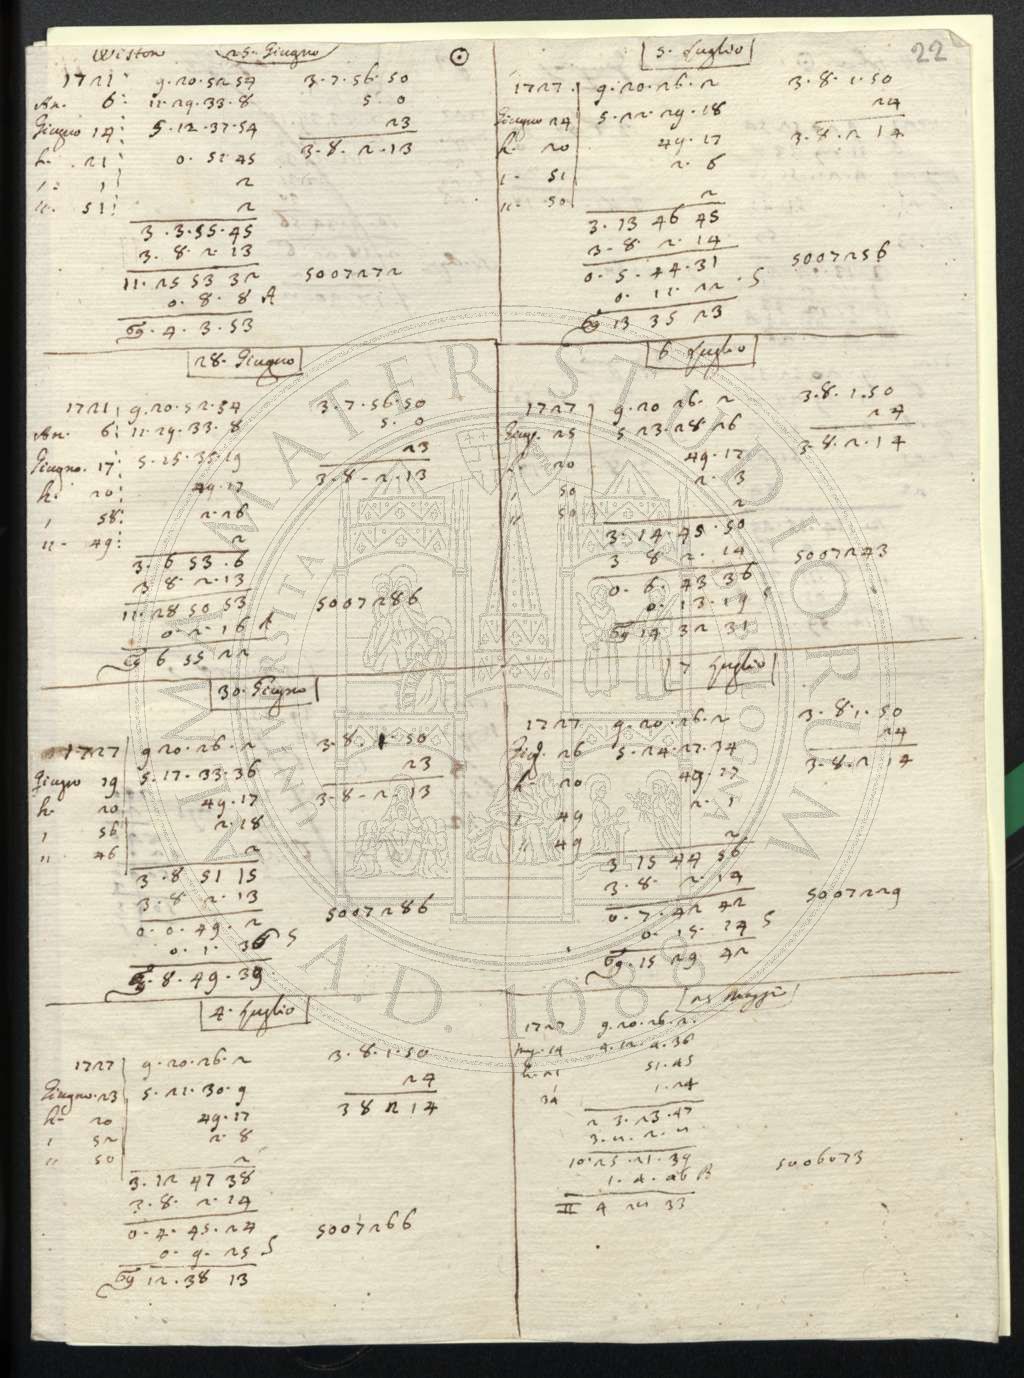 Wiston 25. Giugno ☉
1721 9.20.52.54 3.7.56.50
An. 6 11.29.33.8 5.0
Giugno 14 5.12.37.54 23
h. 21 0.51.45 3.8.2.13
, 1 2
,, 51 2
3.3.55.45
3.8.2.13
11.25 53 32 5007272
0.8.8 A
♋.4.3.53
28. Giugno
1721 9.20.52.54 3.7.56.50
An. 6 11.29.33.8 5.0
Giugno. 17 5.15.35.19 23
h. 20 49.17 3.8.2.13
, 58 2.26
,, 49 2
3.6 53.6
3 8 2.13
11.28 50 53 5007286
0.2.16 A
♋ 6 55 22
30. Giugno
1727 9 20.26.2 3.8.1.50
Giugno 19 5.17.33.36 23
h. 20 49.17 3.8.2.13
, 56 2.18
,, 46 2
3.8 51 15
3.8 2.13
0.0.49.2 5007286
0.1.36 S
♋.8.49.39
4. Luglio
1727 9.20.26.2 3.8.1.50
Giugno.23 5.21.30.9 24
h. 20 49.17 3 8 2 14
, 52 2.8
,, 50 2
3.12 47 38
3.8.2.14
0.4.45.24 5007266
0.9.25 S
♋ 12.38 13
5. Luglio 22
1727 9.20.26.2 3.8.1.50
Giugno 24 5.22.29.18 24
h. 20 49.17 3.8.2 14
, 51 2.6
,, 50 2
3.13 46 45
3.8 2.14
0.5.44.31 5007256
0.11.22.S
♋ 13 35 23
6. Luglio
1727 9.20 26.2 3.8.1.50
Giug. 25 5 23.28 26 24
h. 20 49.17 3.8.2.14
, 50 2.3
,, 50 2
3.14.45.50
3 8 2.14 5007243
0.6.43 36
0.13.19 S
♋ 14 32 31
7 Luglio
1727 9.20.26.2 3.8.1.50
Giug. 26 5.24.27.34 24
h. 20 49.17 3.8.2 14
, 49 2.1
,, 49 2
3 15 44 56
3.8. 2.14
0.7.42 42 5007229
0.15.24 S
♋.15 29 42
25 Maggio
1727 9.20.26.2.
Mag. 14 4.12.4.36
h. 21 51.45
34 1.24
2 3.23.47
10.25.21.39 5006073
♊ 4 33
ALMA MATER STUDIORUM
UNIVERSITA DI BOLOGNA
A.D. 1088